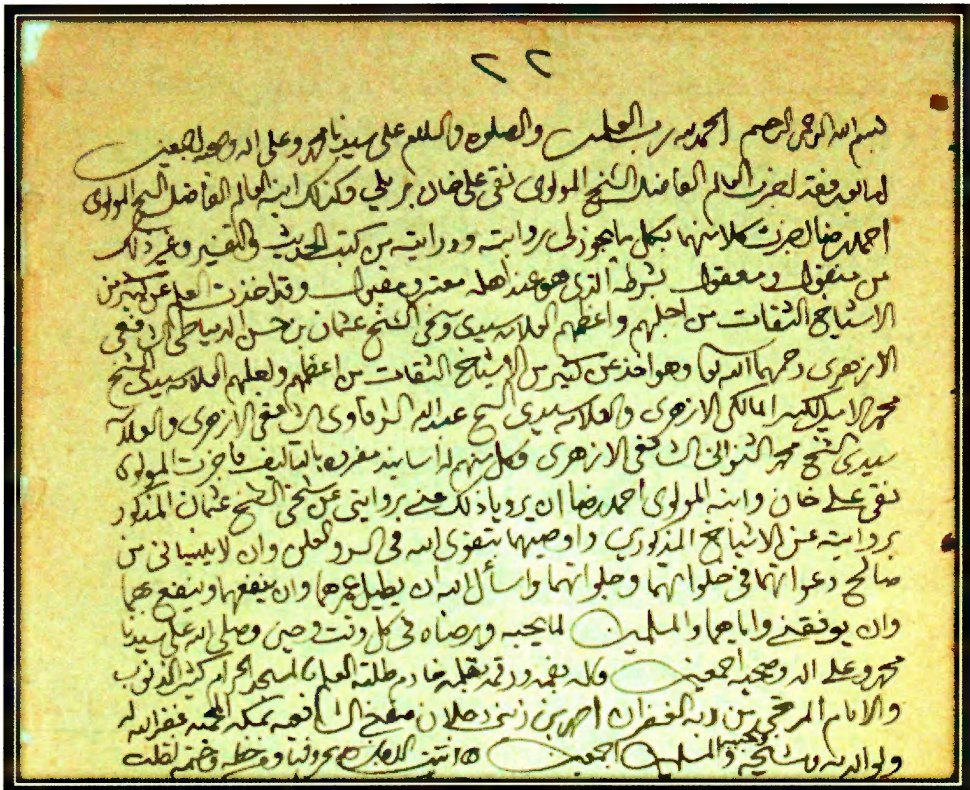 ٢٢
بسم الله الرحمن الرحيم الحمد لله رب العلمين والصلوة والسلام على سيدنا محمد وعلى اله وصحبه اجمعين
اما بعد فقد اجزت العالم الفاضل الشيخ المولوى نقى على خان بريلي وكذلك ابنه العالم الفاضل الشيخ المولوى
احمد رضا اجزت كلا منهما بكل ما يجوز لى روايته ودرايته من كتب الحديث والتفسير وغير ذلك
من منقول ومعقول بشرطه الذى هو عند اهله معتبر ومقبول وقد اخذت العلم عن كثير من
الاشياخ الثقات من اجلهم واعظمهم العلامة سيدى وشيخى الشيخ عثمان بن حسن الدمياطى الشافعى
الازهرى رحمهما الله تعا وهو اخذ عن كثير من الاشياخ الثقات من اعظمهم العلامة سيدى الشيخ
محمد الامير الكبير المالكى الازهرى والعلامة سيدى الشيخ عبد الله الشرقاوى الشافعى الازهرى والعلامة
سيدى الشيخ محمد الشنوانى الشافعى الازهرى وكل منهم له اسانيد مفردة بالتاليف فاجزت المولوى
نقى على خان وابنه المولوى احمد رضا ان يرويا ذلك عنى بروايتى عن شيخى الشيخ عثمان المذكور
بروايته عن الاشياخ المذكورين واوصيهما بتقوى الله فى السر والعلن وان لا ينسيانى من
صالح دعواتهما فى خلواتهما وجلواتهما واسأل الله ان يطيل عمرهما وان ينفعهما وينفع بهما
وان يوفقنى واياهما والمسلمين لما يحبه ويرضاه فى كل وقت وحين وصلى الله على سيدنا
محمد وعلى اله وصحبه اجمعين قاله بفمه ورقمه بقلمه خادم طلبة العلم بالمسجد الحرام كثير الذنوب
والاثام المرتجى من ربه الغفران احمد بن زينى دحلان مفتى الشافعية بمكة المحمية غفر الله له
ولوالديه ومشايخه ومحبيه والمسلمين اجمعين انتهت بحروفها وخطه وختمه